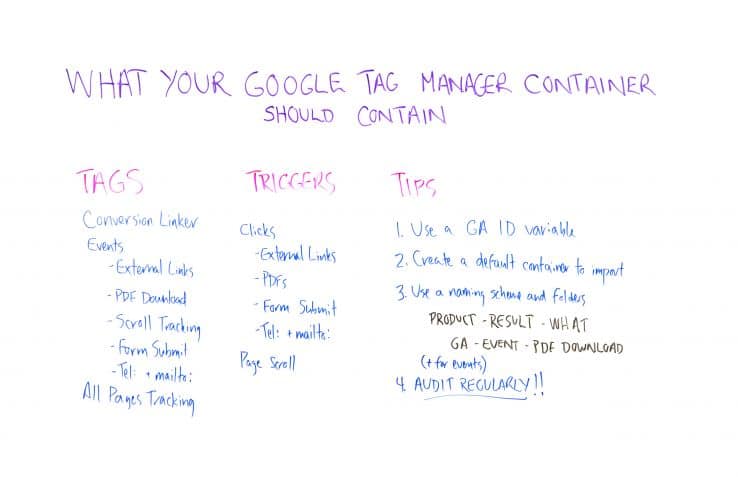 WHAT YOUR GOOGLE TAG MANAGER CONTAINER
SHOULD CONTAIN
TAGS
Conversion Linker
Events
- External Links
- PDF Download
- Scroll Tracking
- Form Submit
- Tel: + mailto:
All Pages Tracking
TRIGGERS
Clicks
- External Links
- PDFs
- Form Submit
- Tel: + mailto:
Page Scroll
TIPS
1. Use a GA ID variable
2. Create a default container to import
3. Use a naming scheme and folders
PRODUCT - RESULT - WHAT
GA - EVENT - PDF DOWNLOAD
(+ for events)
4. AUDIT REGULARLY!!